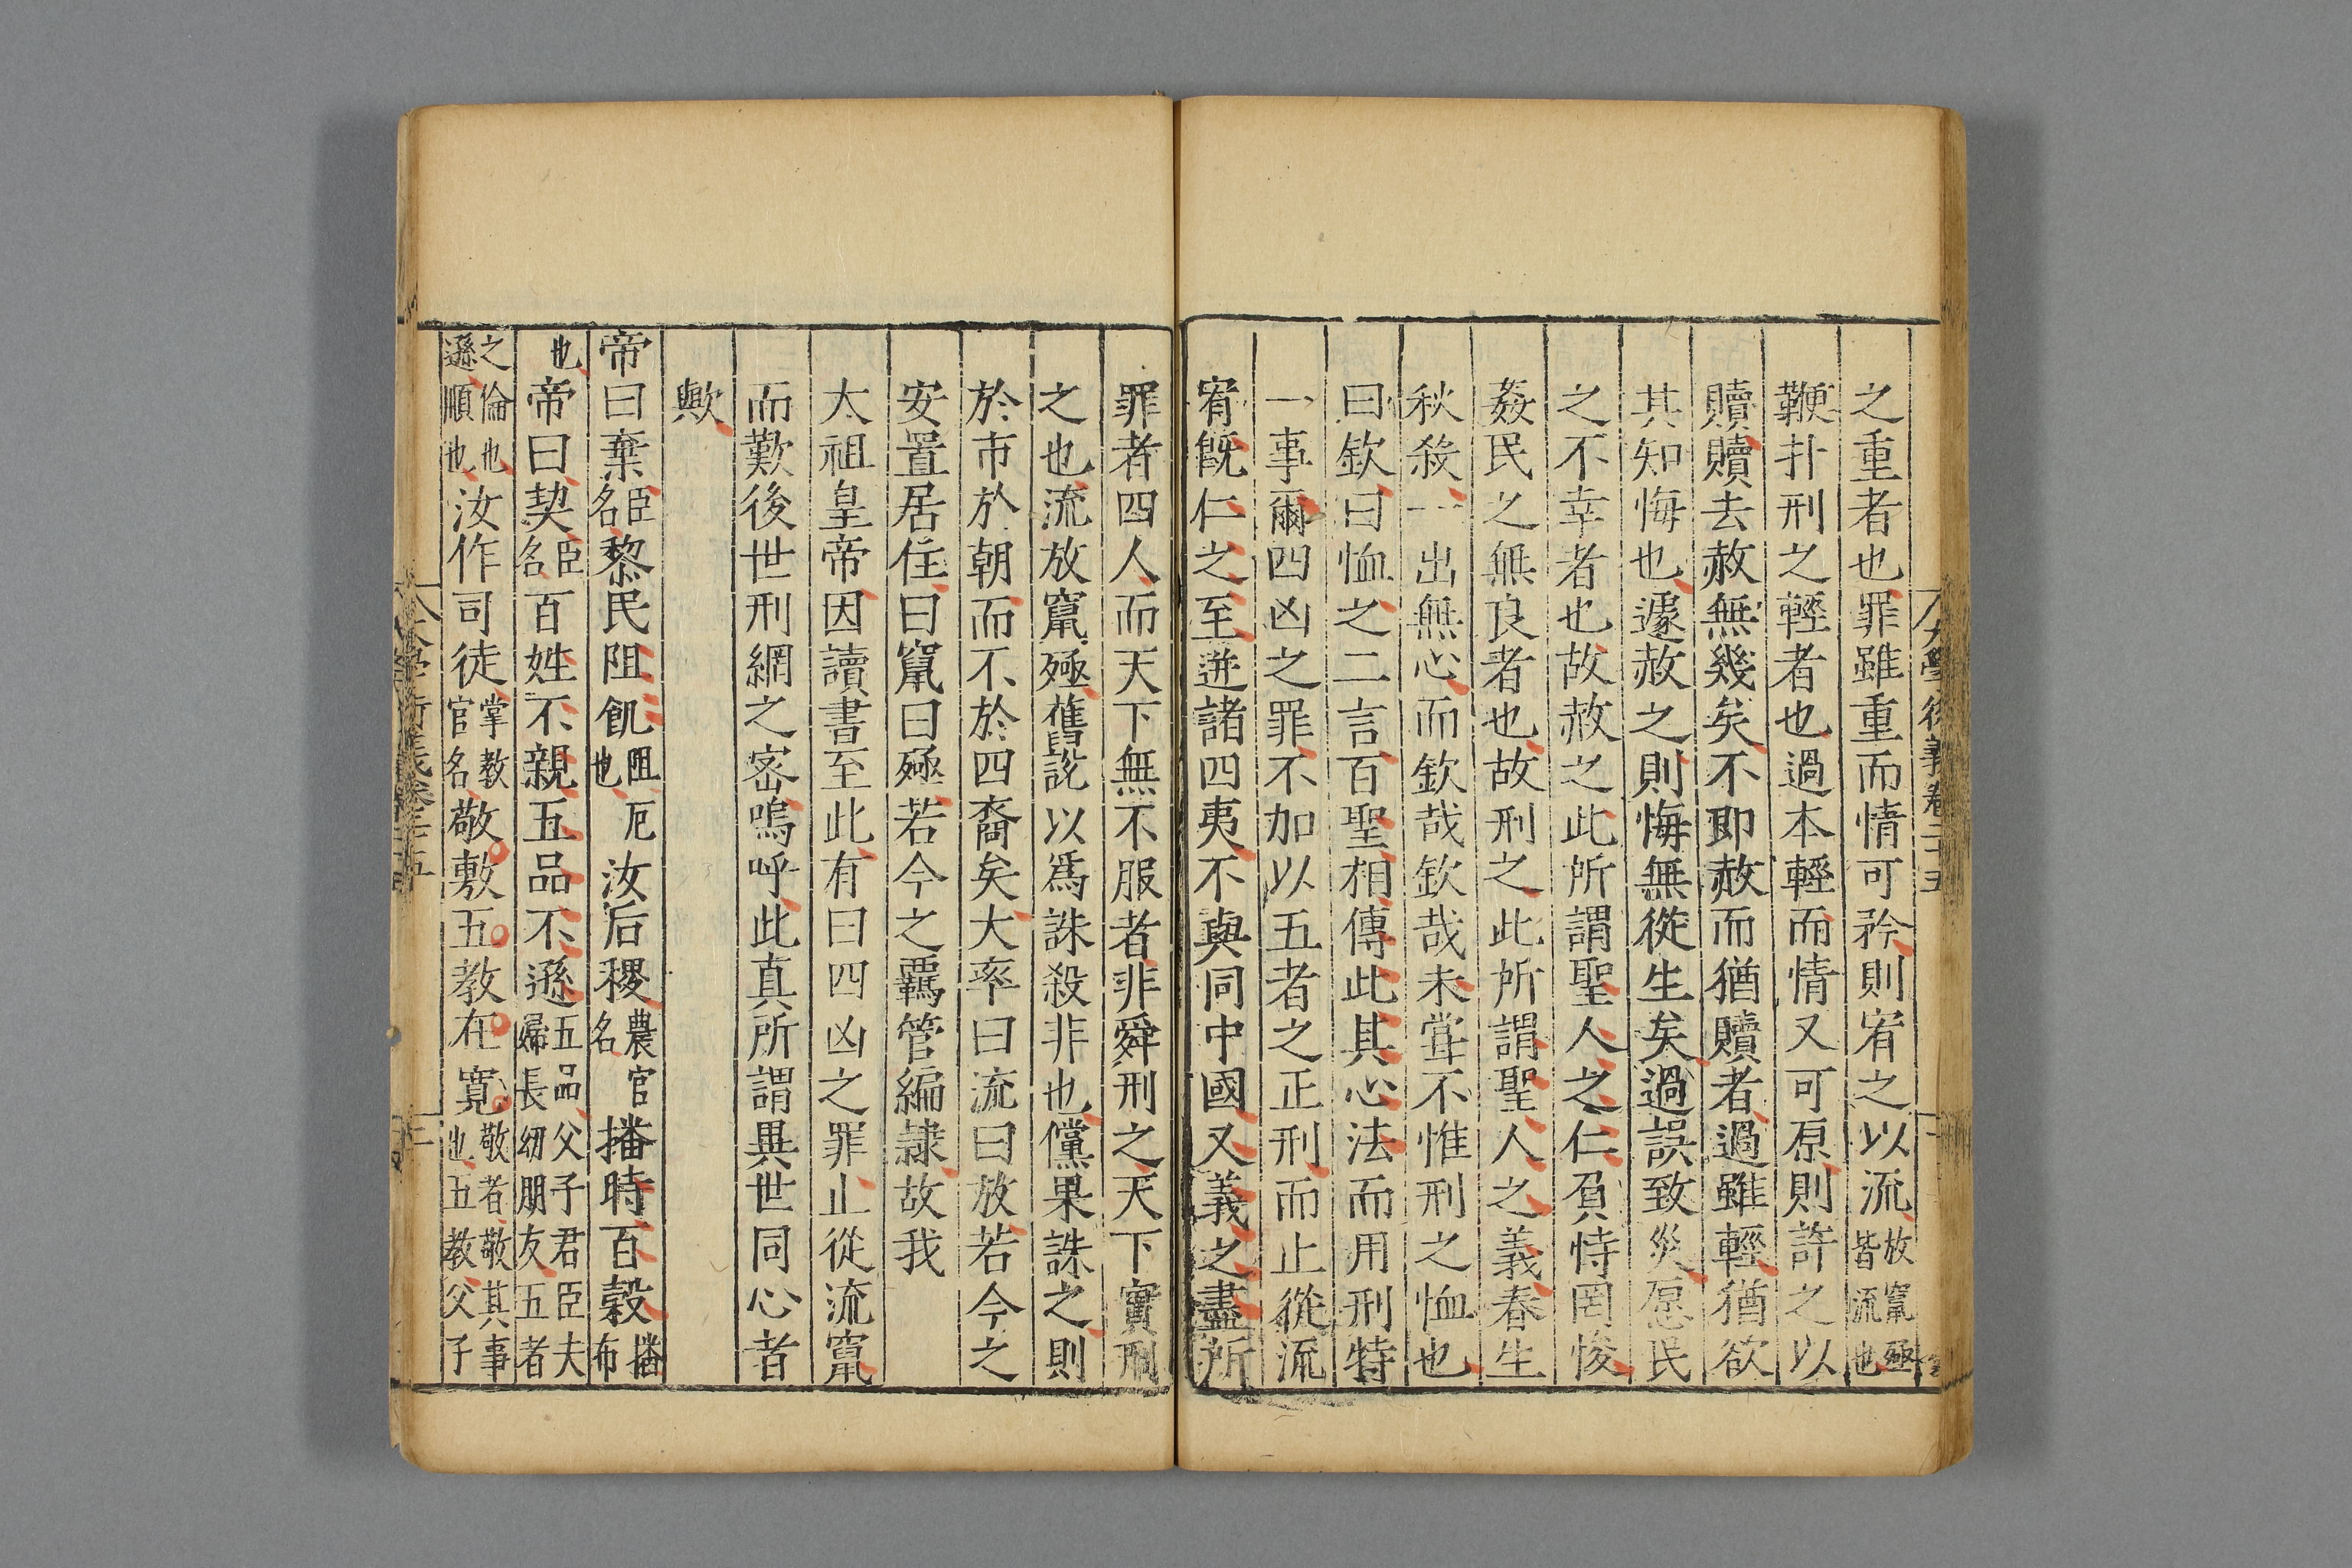 之重者也罪雖重而情可矜則宥之以流放竄殛皆流也
鞭扑刑之輕者也過本輕而情又可原則許之以
贖贖去赦無幾矣不即赦而猶贖者過雖輕猶欲
其知悔也遽赦之則悔無從生矣過誤致災愿民
之不幸者也故赦之此所謂聖人之仁負恃罔悛
姦民之無良者也故刑之此所謂聖人之義春生
秋殺一出無心而欽哉欽哉未甞不惟刑之恤也
曰欽曰恤之二言百聖相傳此其心法而用刑特
一事爾四凶之罪不加以五者之正刑而止從流
宥旣仁之至迸諸四夷不與同中國又義之盡所
罪者四人而天下無不服者非舜刑之天下實刑
之也流放竄殛舊說以爲誅殺非也儻果誅之則
於市於朝而不於四裔矣大率曰流曰放若今之
安置居住曰竄曰殛若今之羈管編隷故我
太祖皇帝因讀書至此有曰四凶之罪止從流竄
而歎後世刑網之宻嗚呼此真所謂異世同心者
歟
帝曰棄臣名黎民阻飢阻厄也汝后稷農官名播時百穀播布
也帝曰契臣名百姓不親五品不遜五品父子君臣夫婦長幼朋友五者
之倫也遜順也汝作司徒掌教官名敬敷五教在寬敬者敬其事也五教父子